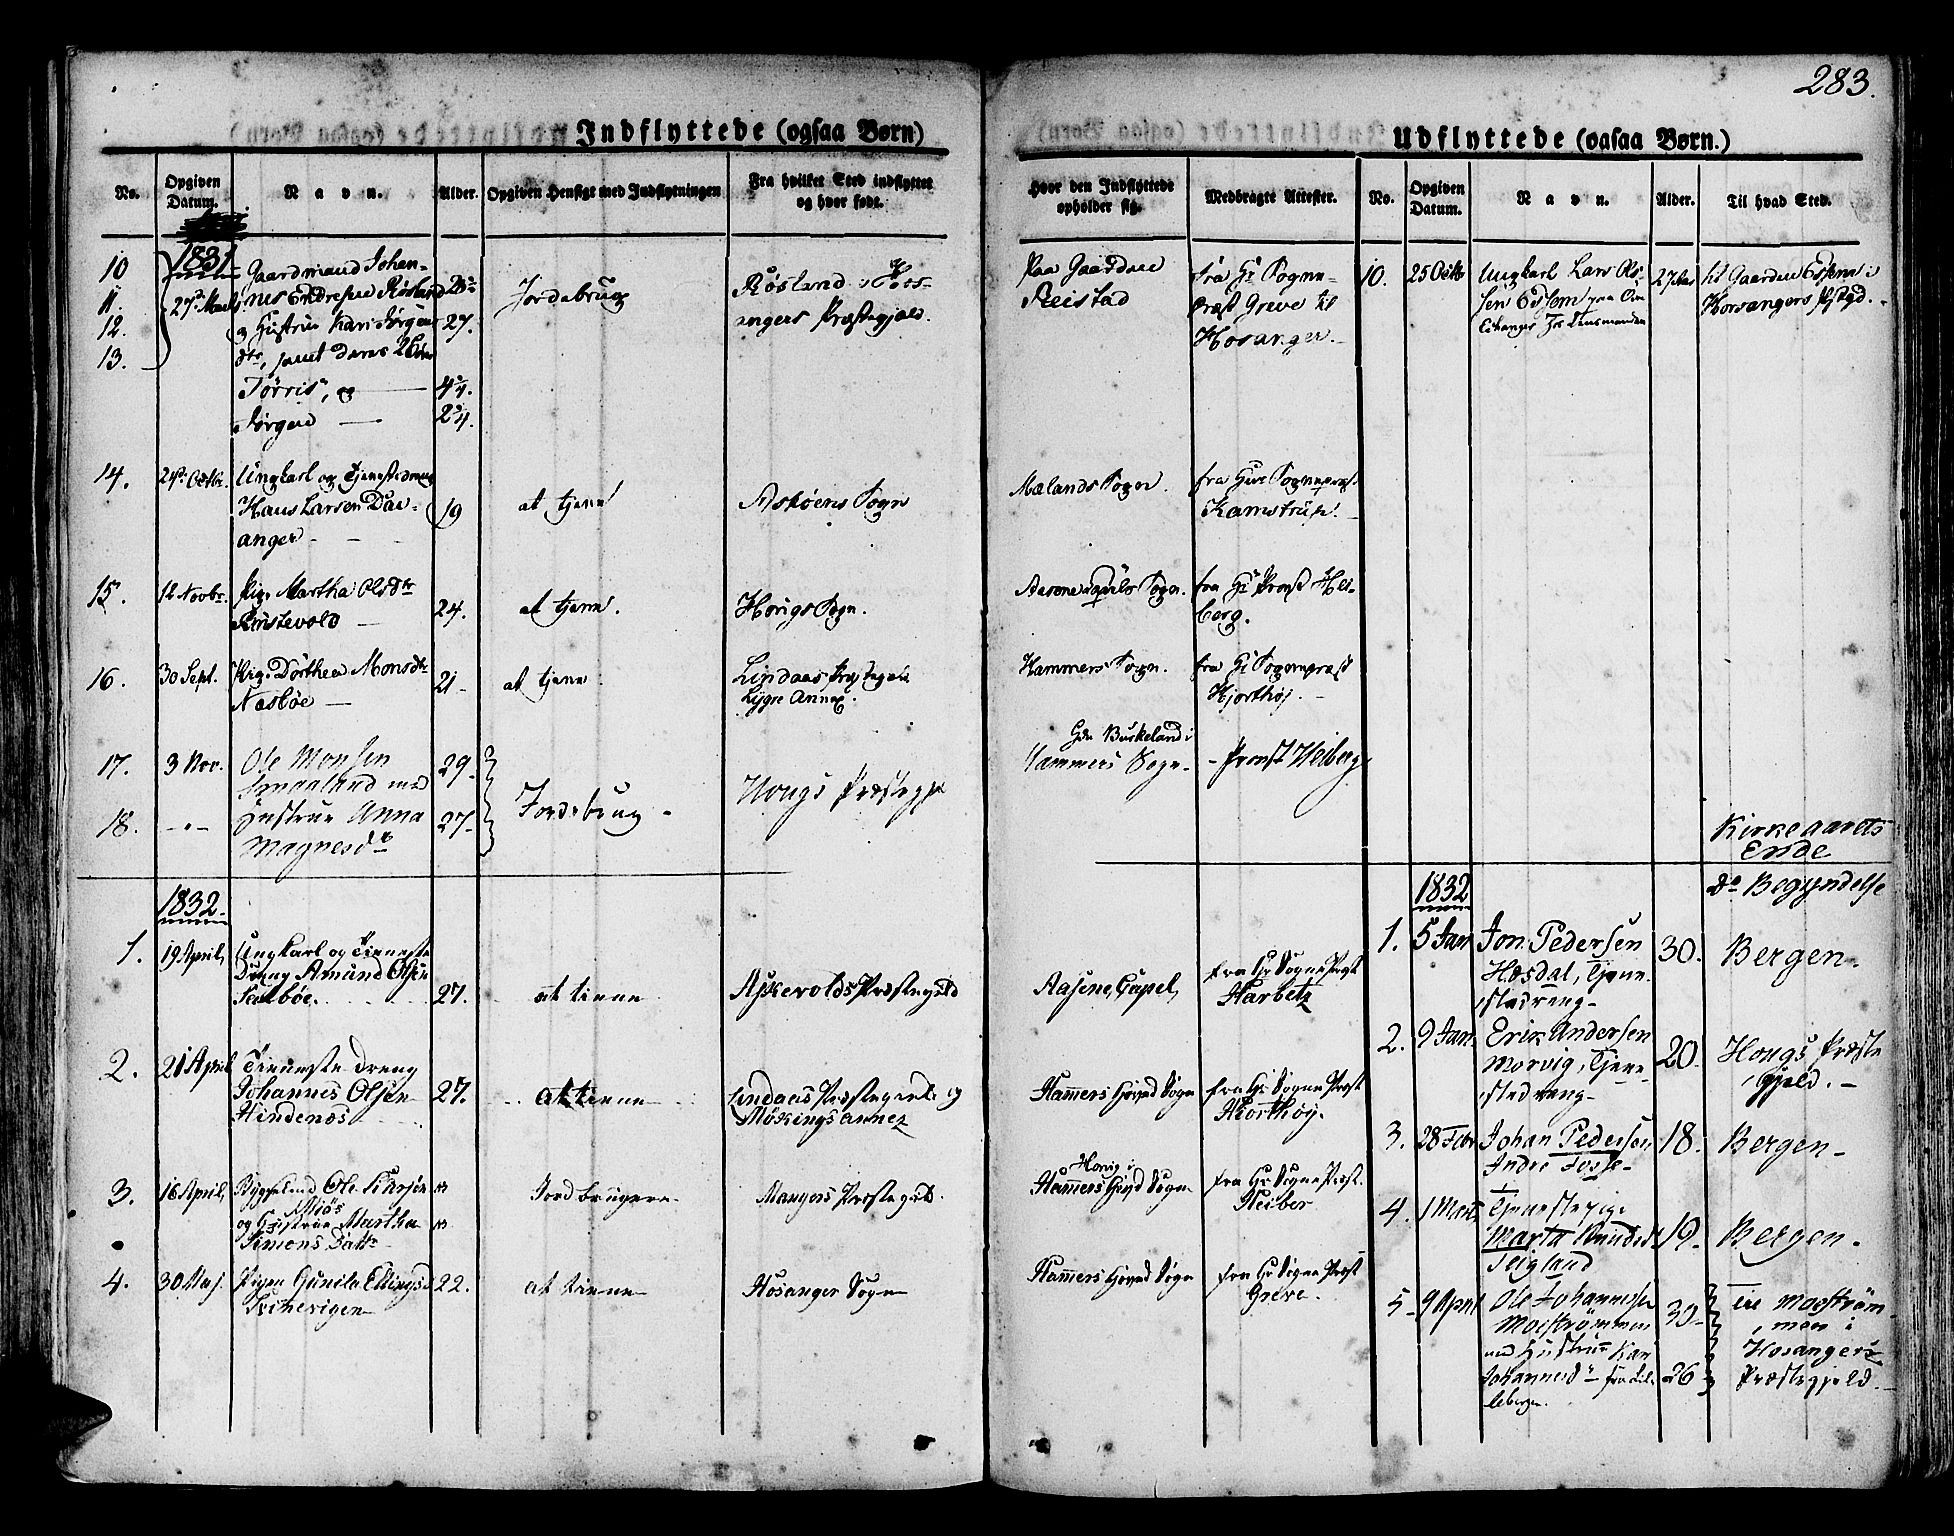 283.
Indflyttede (ogsaa Børn)
No.
Opgiven Datum.
Navn.
Alder.
Opgiven Hensigt med Indflytningen
Fra hvilket Sted indflyttet og hvor født.
Hvor den Indflyttede opholder sig.
Medbragte Attester.
1831
10
11.
12.
13.
Gaardmand Johan-
og Hustrue Kari Jørgens
dtr, samt deres 2 Børn
27.
Tørris, og
Jørgen
Jordebrug
Røsland i Hos-
angers Præstegjæld.
Paa Gaarden
Reistad
fra Hr Sogne-
præst Greve til
Hosanger.
14.
24de Octbr.
Ungkarl og Tjenestedreng
Hans Larsen Dav-
anger
19
at tjene
Askøens Sogn
Mælands Sogn.
fra Herr Sognepræst
Kamstrup.
15.
12 Novbr.
Pig. Martha Olsdtr
Ristevold
24.
at tjene.
Hougs Sogn.
fra Hr Provst Hei-
berg.
16.
30 Sept.
Pig. Dorthea Monsdtr
Nesbøe
21
at tjene.
Lindaas Præstegield
Lygre Annex.
Hammers Sogn.
fra Hr Sognepræst
Hjorthøj.
17.
3 Nov.
Ole Monsen
Smaaland med
29.
18.
Hustrue Anna
Magnesdtr
27.
Jordebrug
Hougs Præstegjd
Gdn Buskeland i
Hammers Sogn
Provst Heiberg
1832.
1.
19 April,
Ungkarl og Tieneste
Dreng Amund Olsen
27.
at tiene
Askevolds Præstegield
Aasene Capel,
fra Hr Sogne Præst
Harbetz
2.
21 April
Tieneste dreng
Johannes Olsen
Hindenæs
27.
at tiene
Lindaas Præstegield og
Møkings annex
Hammers Hoved Sogn
fra Hr Sogne Præst
Hiorthøy.
3.
16 April,
Mjøs
og Hustrue Martha
Simons Datter
Jordbrugere
Mangers Præstegield.
Hammers Hoved Sogn
fra Hr Sogne Præst.
Heiber
4.
30 Maj.
Pigen Gunila Ellingsd
22.
at tiene
Hosanger Sogn
Hammers Hoved Sogn
fra Hr Sogne Præst
Greve.
Udflyttede (ogsaa Børn.)
No.
Opgiven Datum.
Navn.
Alder.
Til hvad Sted.
10.
25 Octbr
Ungkarl Lars Ol-
27 Aar
til Gaarden
Horsangers Pstgd.
Kirkeaarets
Ende
1832
Do Begyndelse
1.
5 Jan
Jon Pedersen
Hæsdal, Tjene-
stedreng
30.
Bergen.
2.
9 Jan.
Erik Andersen
Morvig, Tjene-
stedreng
20
Hougs Præste
gjeld.
3.
28 Febr
Johan Pedersen
Indre Fosse
18.
Bergen
4.
1 Marts
Tjenestepige
Marta Knudsd
Teigland
19.
Bergen.
5
9 April
Ole Johannesen
Moestrømmen
med Hustrue Kari
Johannesdtr fra Lil-
lebergen.
30
26
til Moestrøm-
men i
Hosangers
Præstegjeld